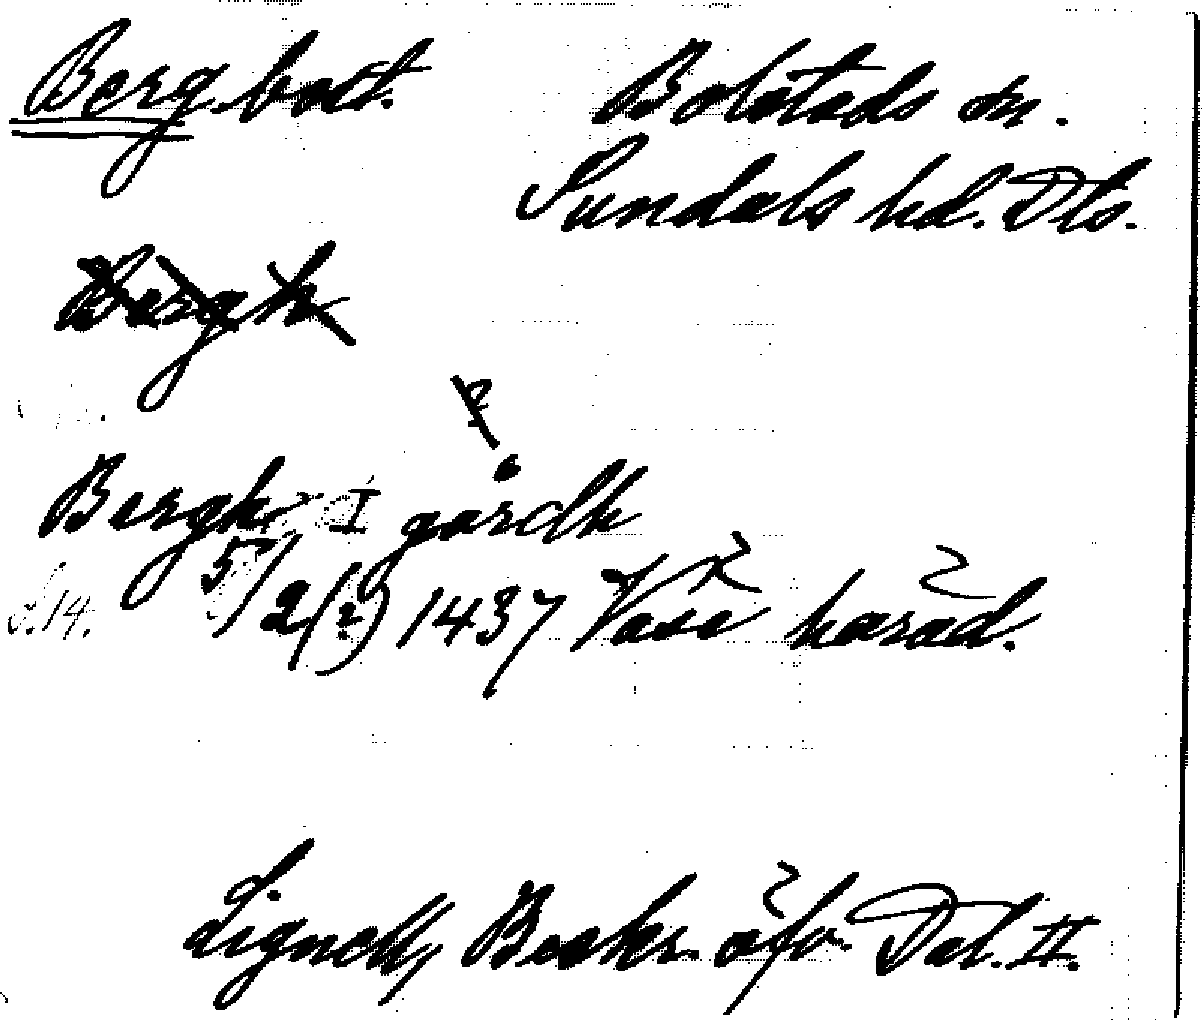 Berg bost. Bolstads sn.
Sundals hd. Dls.
Bergh
Bergh I gardh
d. 14. 5/2(?) 1437 Vase härad.
Lignell, Beskr. öfv. Dal. II.